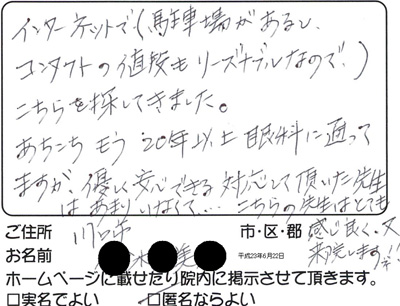 インターネットで(駐車場があるし、
コンタクトの値段もリーズナブルなので。)
こちらを探してきました。
あちこちもう20年以上眼科に通って
ますが、優しく安心できる対応して頂いた先生
はあまりいなくて… こちらの先生はとても
感じ良く、又
来院します!!
ご住所 川口市 市・区・郡
お名前 平成23年6月22日
ホームページに載せたり院内に掲示させて頂きます。
□実名でよい □匿名ならよい